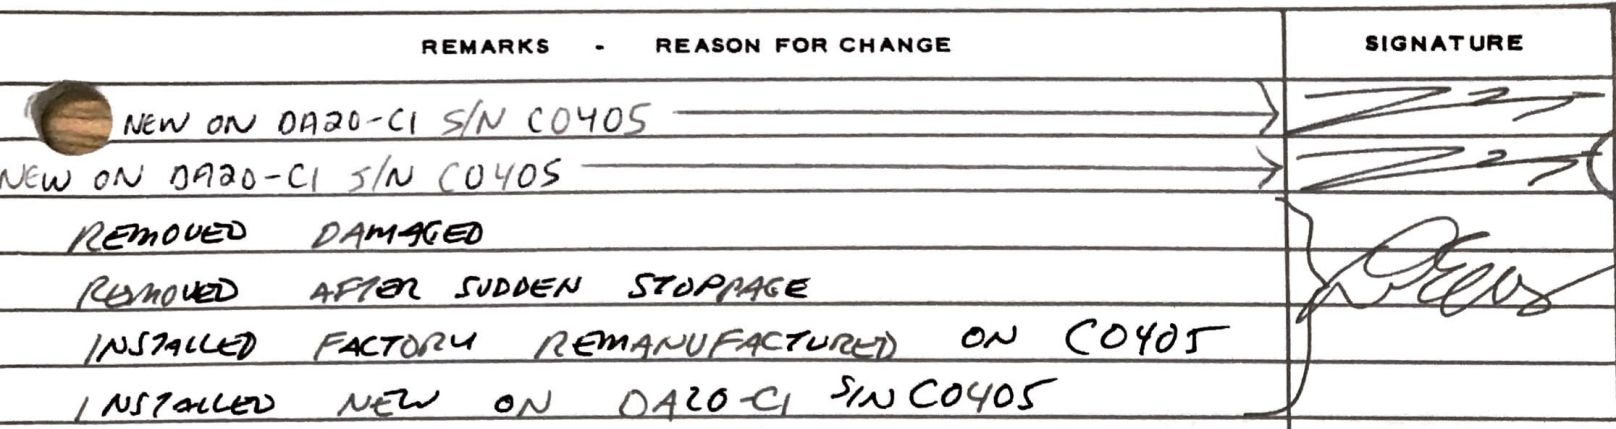 REMARKS - REASON FOR CHANGE SIGNATURE
NEW ON DA20-C1 S/N C0405
NEW ON DA20-C1 S/N C0405
REMOVED DAMAGED
REMOVED AFTER SUDDEN STOPPAGE
INSTALLED FACTORY REMANUFACTURED ON C0405
INSTALLED NEW ON DA20-C1 S/N C0405